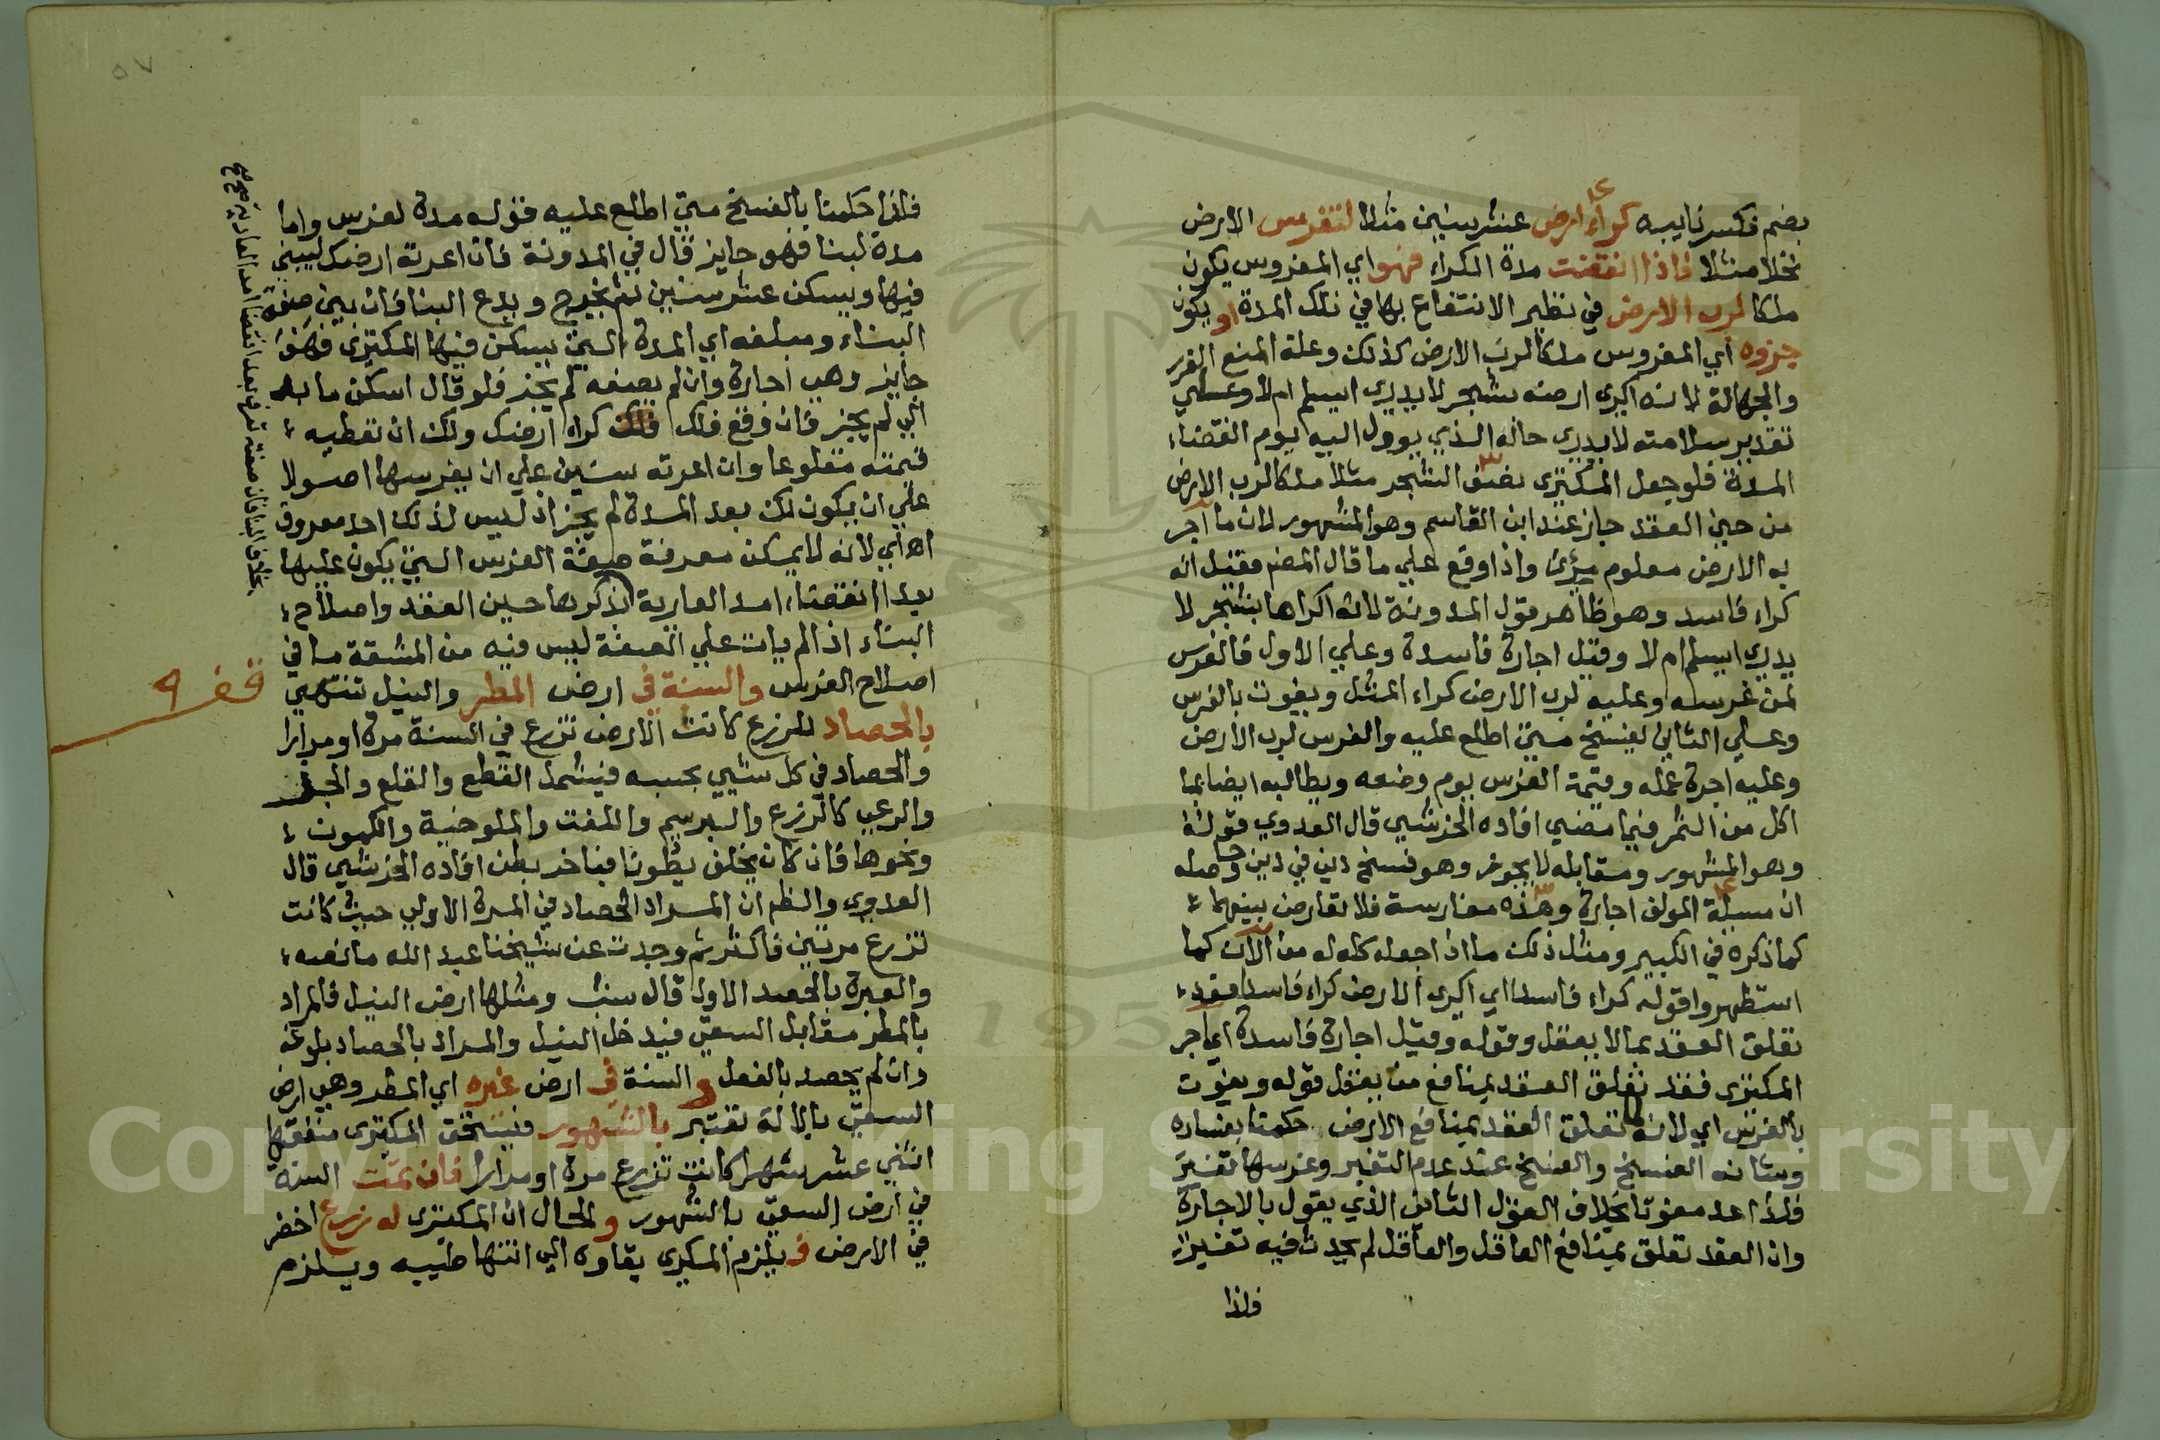 بضم فكسر نايبه كراء ارض عشر سنين مثلا لتغرس الارض
نخلا مثلا فاذا انقضت مدة الكراء فهو اي المغروس يكون
ملكا لرب الارض في نظير الانتفاع بها في تلك المدة او يكون
جزوه اي المغروس ملكا لرب الارض كذلك وعلة المنع الغرر
والجهالة لانه اكرى ارضه بشجر لا يدري ايسلم ام لا وعلي
تقدير سلامته لا يدري حاله الذي يوول اليه يوم انقضاء
المدة فلو جعل المكتري نصف الشجر مثلا ملكا لرب الارض
من حين العقد جاز عند ابن القاسم وهو المشهور لان ما اجر
به الارض معلوم مرئ واذا وقع علي ما قال المص فقيل انه
كراء فاسد وهو ظاهر قول المدونة لانه اكراها بشجر لا
يدري ايسلم ام لا وقيل اجارة فاسدة وعلي الاول فالغرس
لمن غرسه وعليه لرب الارض كراء المثل ويفوت بالغرس
وعلي الثاني يفسخ متي اطلع عليه والغرس لرب الارض
وعليه اجرة عمله وقيمة الغرس يوم وضعه ويطالبه ايضا بما
اكل من الثمر فيما مضي افاده الخرشي قال العدوي قوله
وهو المشهور ومقابله لا يجوز وهو فسخ دين في دين وحاصله
ان مسيلة المولف اجارة وهذه مغارسة فلا تعارض بينهما
كما ذكره في الكبير ومثل ذلك ما اذا جعله كله له من الان كما
استظهروا قوله كراء فاسدا اي اكرى الارض كراء فاسدا فقد
تعلق العقد بما لا يعقل وقوله وقيل اجارة فاسدة اي اجر
المكترى فقد تعلق العقد بمنافع من يعقل قوله ويفوت
بالغرس اي لانه لما تعلق العقد بمنافع الارض حكمنا بفساده
وشانه الفسخ والفسخ عند عدم التغير وغرسها تغير
فلذا عد مفوتا بخلاف القول الثاني الذي يقول بالاجارة
وان العقد تعلق بمنافع العاقل والعاقل لم يحدث فيه تغير
فلذا
٥٧
فلذا حكمنا بالفسخ متي اطلع عليه قوله مدة لغرس واما
مدة لبنا فهو جايز قال في المدونة فان اعرته ارضك ليبني
فيها ويسكن عشر سنين ثم يخرج ويدع البنا فان بين صفة
البناء ومبلغه اي المدة التي يسكن فيها المكتري فهو
جايز وهي اجارة وان لم يصفه لم يجز فلو قال اسكن ما بدا
لي لم يجز فان وقع فلك كراء ارضك ولك ان تعطيه
قيمته مقلوعا وان اعرته سنين علي ان يغرسها اصولا
علي ان يكون لك بعد المدة لم يجز اذ ليس لذلك احد معروف
اه اي لانه لا يمكن معرفة صفة الغرس التي يكون عليها
بعد انقضاء امد العارية لذكرها حين العقد واصلاح
البناء اذا لم يات علي الصفة ليس فيه من المشقة ما في
اصلاح الغرس والسنة في ارض المطر والنيل تنتهي
بالحصاد للزرع كانت الارض تزرع في السنة مرة او مرارا
والحصاد في كل شيي بحسبه فيشمل القطع والقلع والجذ
والرعي كالزرع والبرسيم واللفت والملوخية والكمون
ونحوها فان كان يخلف بطونا فباخر بطن افاده الخرشي قال
العدوي والظ ان المراد الحصاد في المرة الاولي حيث كانت
تزرع مرتين فاكثر ثم وجدت عن شيخنا عبد الله ما نصه
والعبرة بالحصد الاول قال شب ومثلها ارض النيل فالمراد
بالمطر مقابل السقي فيدخل النيل والمراد بالحصاد بلوغه
وان لم يحصد بالفعل والسنة في ارض غيره اي المطر وهي ارض
السقي بالالة تعتبر بالشهور فيستحق المكتري منفعتها
اثني عشر شهرا كانت تزرع مرة او مرارا فان تمت السنة
في ارض السقي بالشهور والحال ان المكتري له زرع اخضر
في الارض فيلزم المكري بقاوه الي انتها طيبه ويلزم
بخلاف البنا فان صفته تعرف بعد انقضا امد العارية صح صح
قف